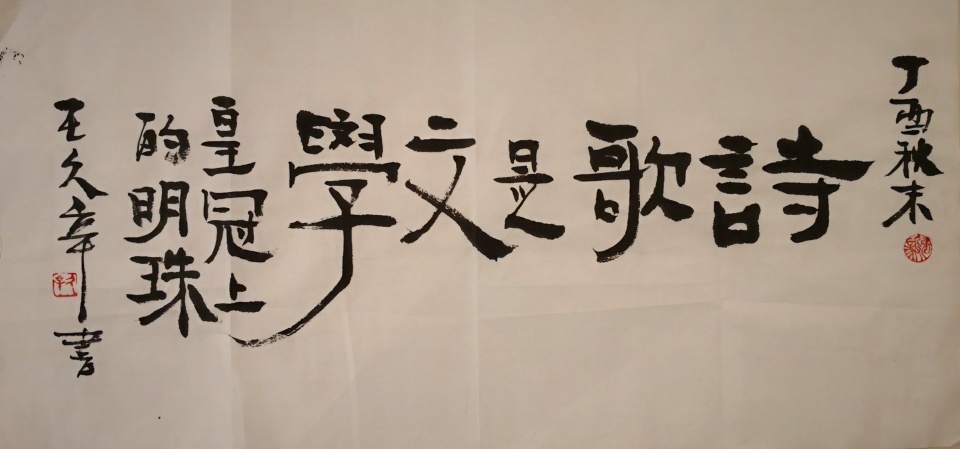 丁酉秋末
詩歌是文學
皇冠上
的明珠
王久辛書